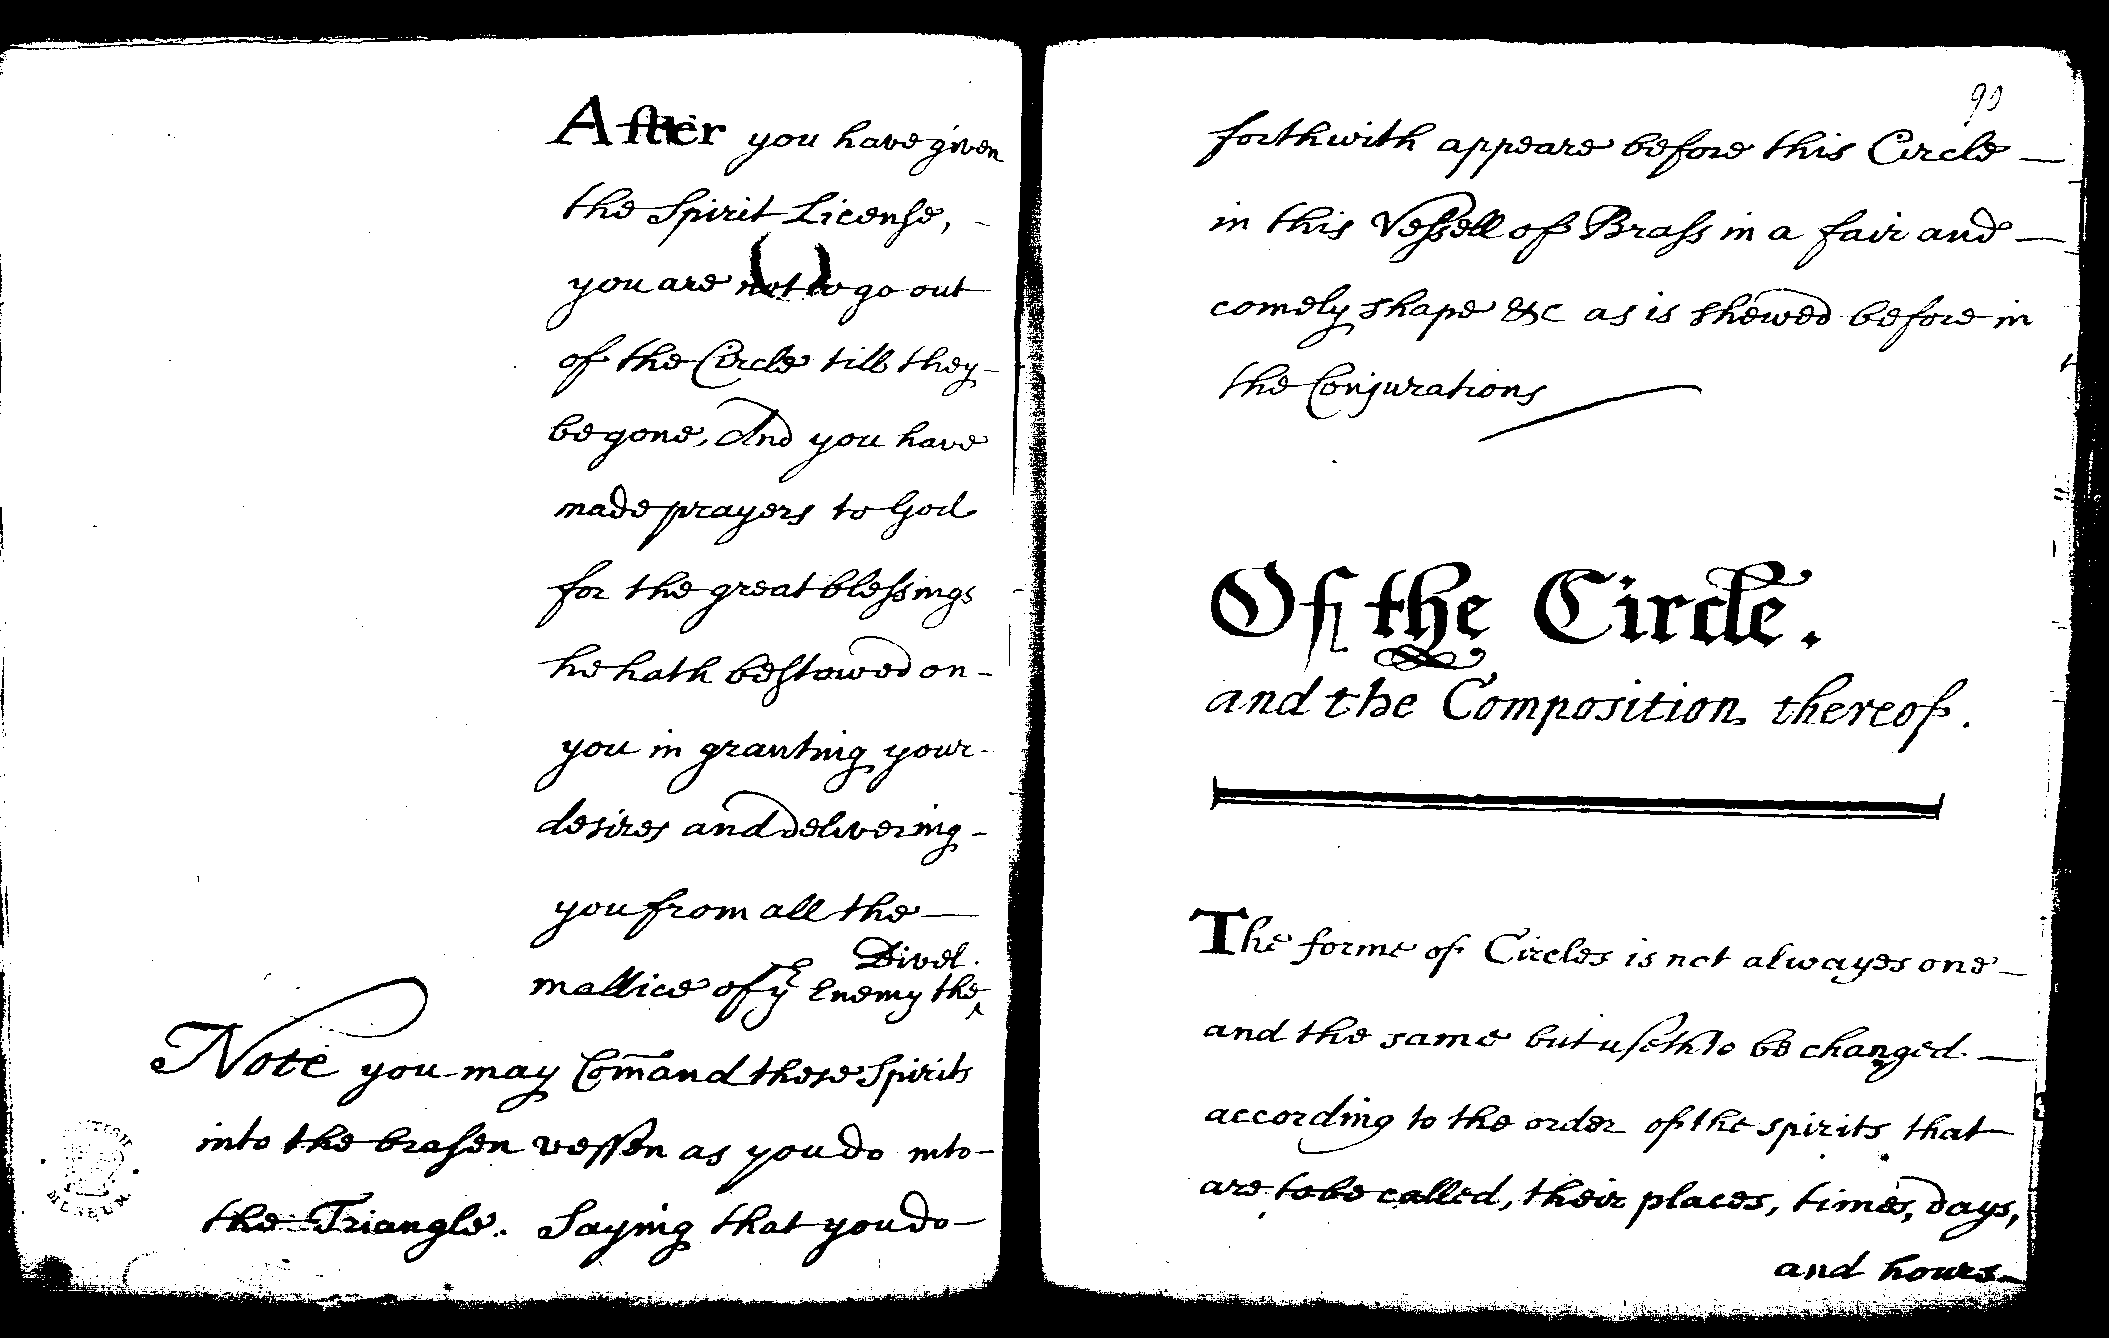 After you have given
the Spirit License,
you are not to go out
of the Circle till they
be gone, And you have
made prayers to God
for the great blessings
he hath bestowed on
you in granting your
desires and delivering
you from all the
mallice of yͤ Enemy the Divel.
Note you may Com̄and these Spirits
into the brasen vessen as you do into
the Triangle. Saying that you do
90
forthwith appeare before this Circle
in this Vessell of Brass in a fair and
comely shape &c as is shewed before in
the Conjurations
Of the Circle.
and the Composition thereof.
The forme of Circles is not alwayes one
and the same but useth to be changed
according to the order of the spirits that
are to be called, their places, times, days,
and hours